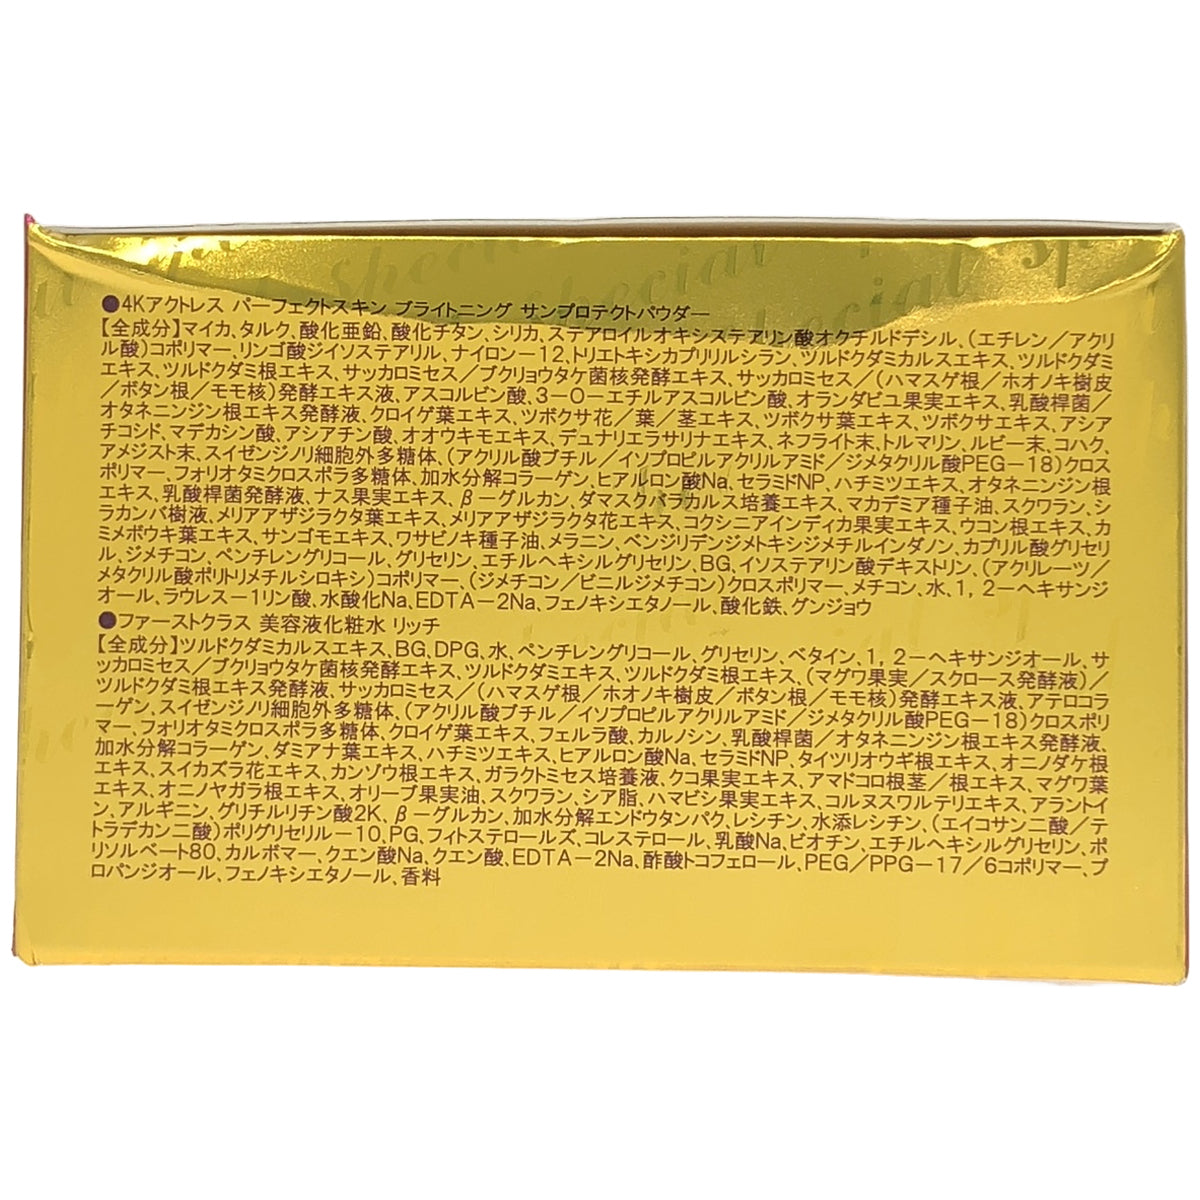 ●4Kアクトレス パーフェクトスキン ブライトニング サンプロテクトパウダー
【全成分】マイカ、タルク、酸化亜鉛、酸化チタン、シリカ、ステアロイルオキシステアリン酸オクチルドデシル、(エチレン/アクリ
ル酸)コポリマー、リンゴ酸ジイソステアリル、ナイロン-12、トリエトキシカプリリルシラン、ツルドクダミカルスエキス、ツルドクダミ
エキス、ツルドクダミ根エキス、サッカロミセス/ブクリョウタケ菌核発酵エキス、サッカロミセス/(ハマスゲ根/ホオノキ樹皮
/ボタン根/モモ核)発酵エキス液、アスコルビン酸、3-O-エチルアスコルビン酸、オランダビユ果実エキス、乳酸桿菌/
オタネニンジン根エキス発酵液、クロイゲ葉エキス、ツボクサ花/葉/茎エキス、ツボクサ葉エキス、ツボクサエキス、アシア
チコシド、マデカシン酸、アシアチン酸、オオウキモエキス、デュナリエラサリナエキス、ネフライト末、トルマリン、ルビー末、コハク、
アメジスト末、スイゼンジノリ細胞外多糖体、(アクリル酸ブチル/イソプロピルアクリルアミド/ジメタクリル酸PEG-18)クロス
ポリマー、フォリオタミクロスポラ多糖体、加水分解コラーゲン、ヒアルロン酸Na、セラミドNP、ハチミツエキス、オタネニンジン根
エキス、乳酸桿菌発酵液、ナス果実エキス、β-グルカン、ダマスクバラカルス培養エキス、マカデミア種子油、スクワラン、シ
ラカンバ樹液、メリアアザジラクタ葉エキス、メリアアザジラクタ花エキス、コクシニアインディカ果実エキス、ウコン根エキス、カ
ミメボウキ葉エキス、サンゴモエキス、ワサビノキ種子油、メラニン、ベンジリデンジメトキシジメチルインダノン、カプリル酸グリセリ
ル、ジメチコン、ペンチレングリコール、グリセリン、エチルヘキシルグリセリン、BG、イソステアリン酸デキストリン、(アクリレーツ/
メタクリル酸ポリトリメチルシロキシ)コポリマー、(ジメチコン/ビニルジメチコン)クロスポリマー、メチコン、水、1,2-ヘキサンジ
オール、ラウレス-1リン酸、水酸化Na、EDTA-2Na、フェノキシエタノール、酸化鉄、グンジョウ
●ファーストクラス 美容液化粧水 リッチ
【全成分】ツルドクダミカルスエキス、BG、DPG、水、ペンチレングリコール、グリセリン、ベタイン、1,2-ヘキサンジオール、サ
ッカロミセス/ブクリョウタケ菌核発酵エキス、ツルドクダミエキス、ツルドクダミ根エキス、(マグワ果実/スクロース発酵液)/
ツルドクダミ根エキス発酵液、サッカロミセス/(ハマスゲ根/ホオノキ樹皮/ボタン根/モモ核)発酵エキス液、アテロコラ
ーゲン、スイゼンジノリ細胞外多糖体、(アクリル酸ブチル/イソプロピルアクリルアミド/ジメタクリル酸PEG-18)クロスポリ
マー、フォリオタミクロスポラ多糖体、クロイゲ葉エキス、フェルラ酸、カルノシン、乳酸桿菌/オタネニンジン根エキス発酵液、
加水分解コラーゲン、ダミアナ葉エキス、ハチミツエキス、ヒアルロン酸Na、セラミドNP、タイツリオウギ根エキス、オニノダケ根
エキス、スイカズラ花エキス、カンゾウ根エキス、ガラクトミセス培養液、クコ果実エキス、アマドコロ根茎/根エキス、マグワ葉
エキス、オニノヤガラ根エキス、オリーブ果実油、スクワラン、シア脂、ハマビシ果実エキス、コルヌスワルテリエキス、アラントイ
ン、アルギニン、グリチルリチン酸2K、β-グルカン、加水分解エンドウタンパク、レシチン、水添レシチン、(エイコサン二酸/テ
トラデカン二酸)ポリグリセリル-10、PG、フィトステロールズ、コレステロール、乳酸Na、ビオチン、エチルヘキシルグリセリン、ポ
リソルベート80、カルボマー、クエン酸Na、クエン酸、EDTA-2Na、酢酸トコフェロール、PEG/PPG-17/6コポリマー、プ
ロパンジオール、フェノキシエタノール、香料